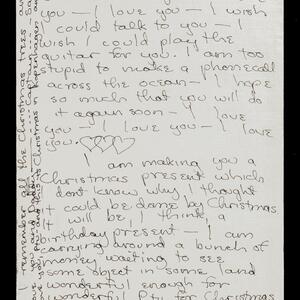 you — I love you — I wish
I could talk to you — I
wish I could play the
guitar for you. I am too
stupid to make a phonecall
across the ocean — I hope
so much that you will do
it again soon — I love
you — I love you — I love
you.
I am making you a
Christmas present which
I don't know why I thought
it could be done by Christmas
It will be, I think, a
birthday present — I am
carrying around a bunch of
money waiting to see
some object in some land
wonderful enough for
wonderful for Christmas
I remember all the Christmas trees
you and Daddy
Christmas in Kopenhagen